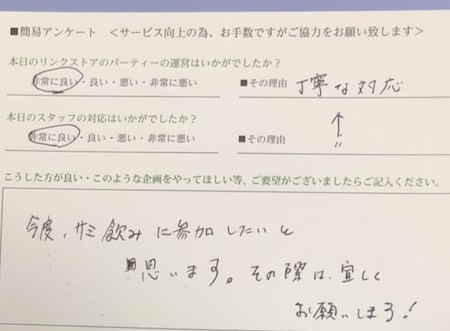 ■簡易アンケート ＜サービス向上の為、お手数ですがご協力をお願い致します＞
本日のリンクストアのパーティーの運営はいかがでしたか？
非常に良い・良い・悪い・非常に悪い ■その理由 丁寧な対応
本日のスタッフの対応はいかがでしたか？
非常に良い・良い・悪い・非常に悪い ■その理由 〃
こうした方が良い・このような企画をやってほしい等、ご要望がございましたらご記入ください。
今度、サミ飲みに参加したいと
思います。その際は、宜しく
お願いします！